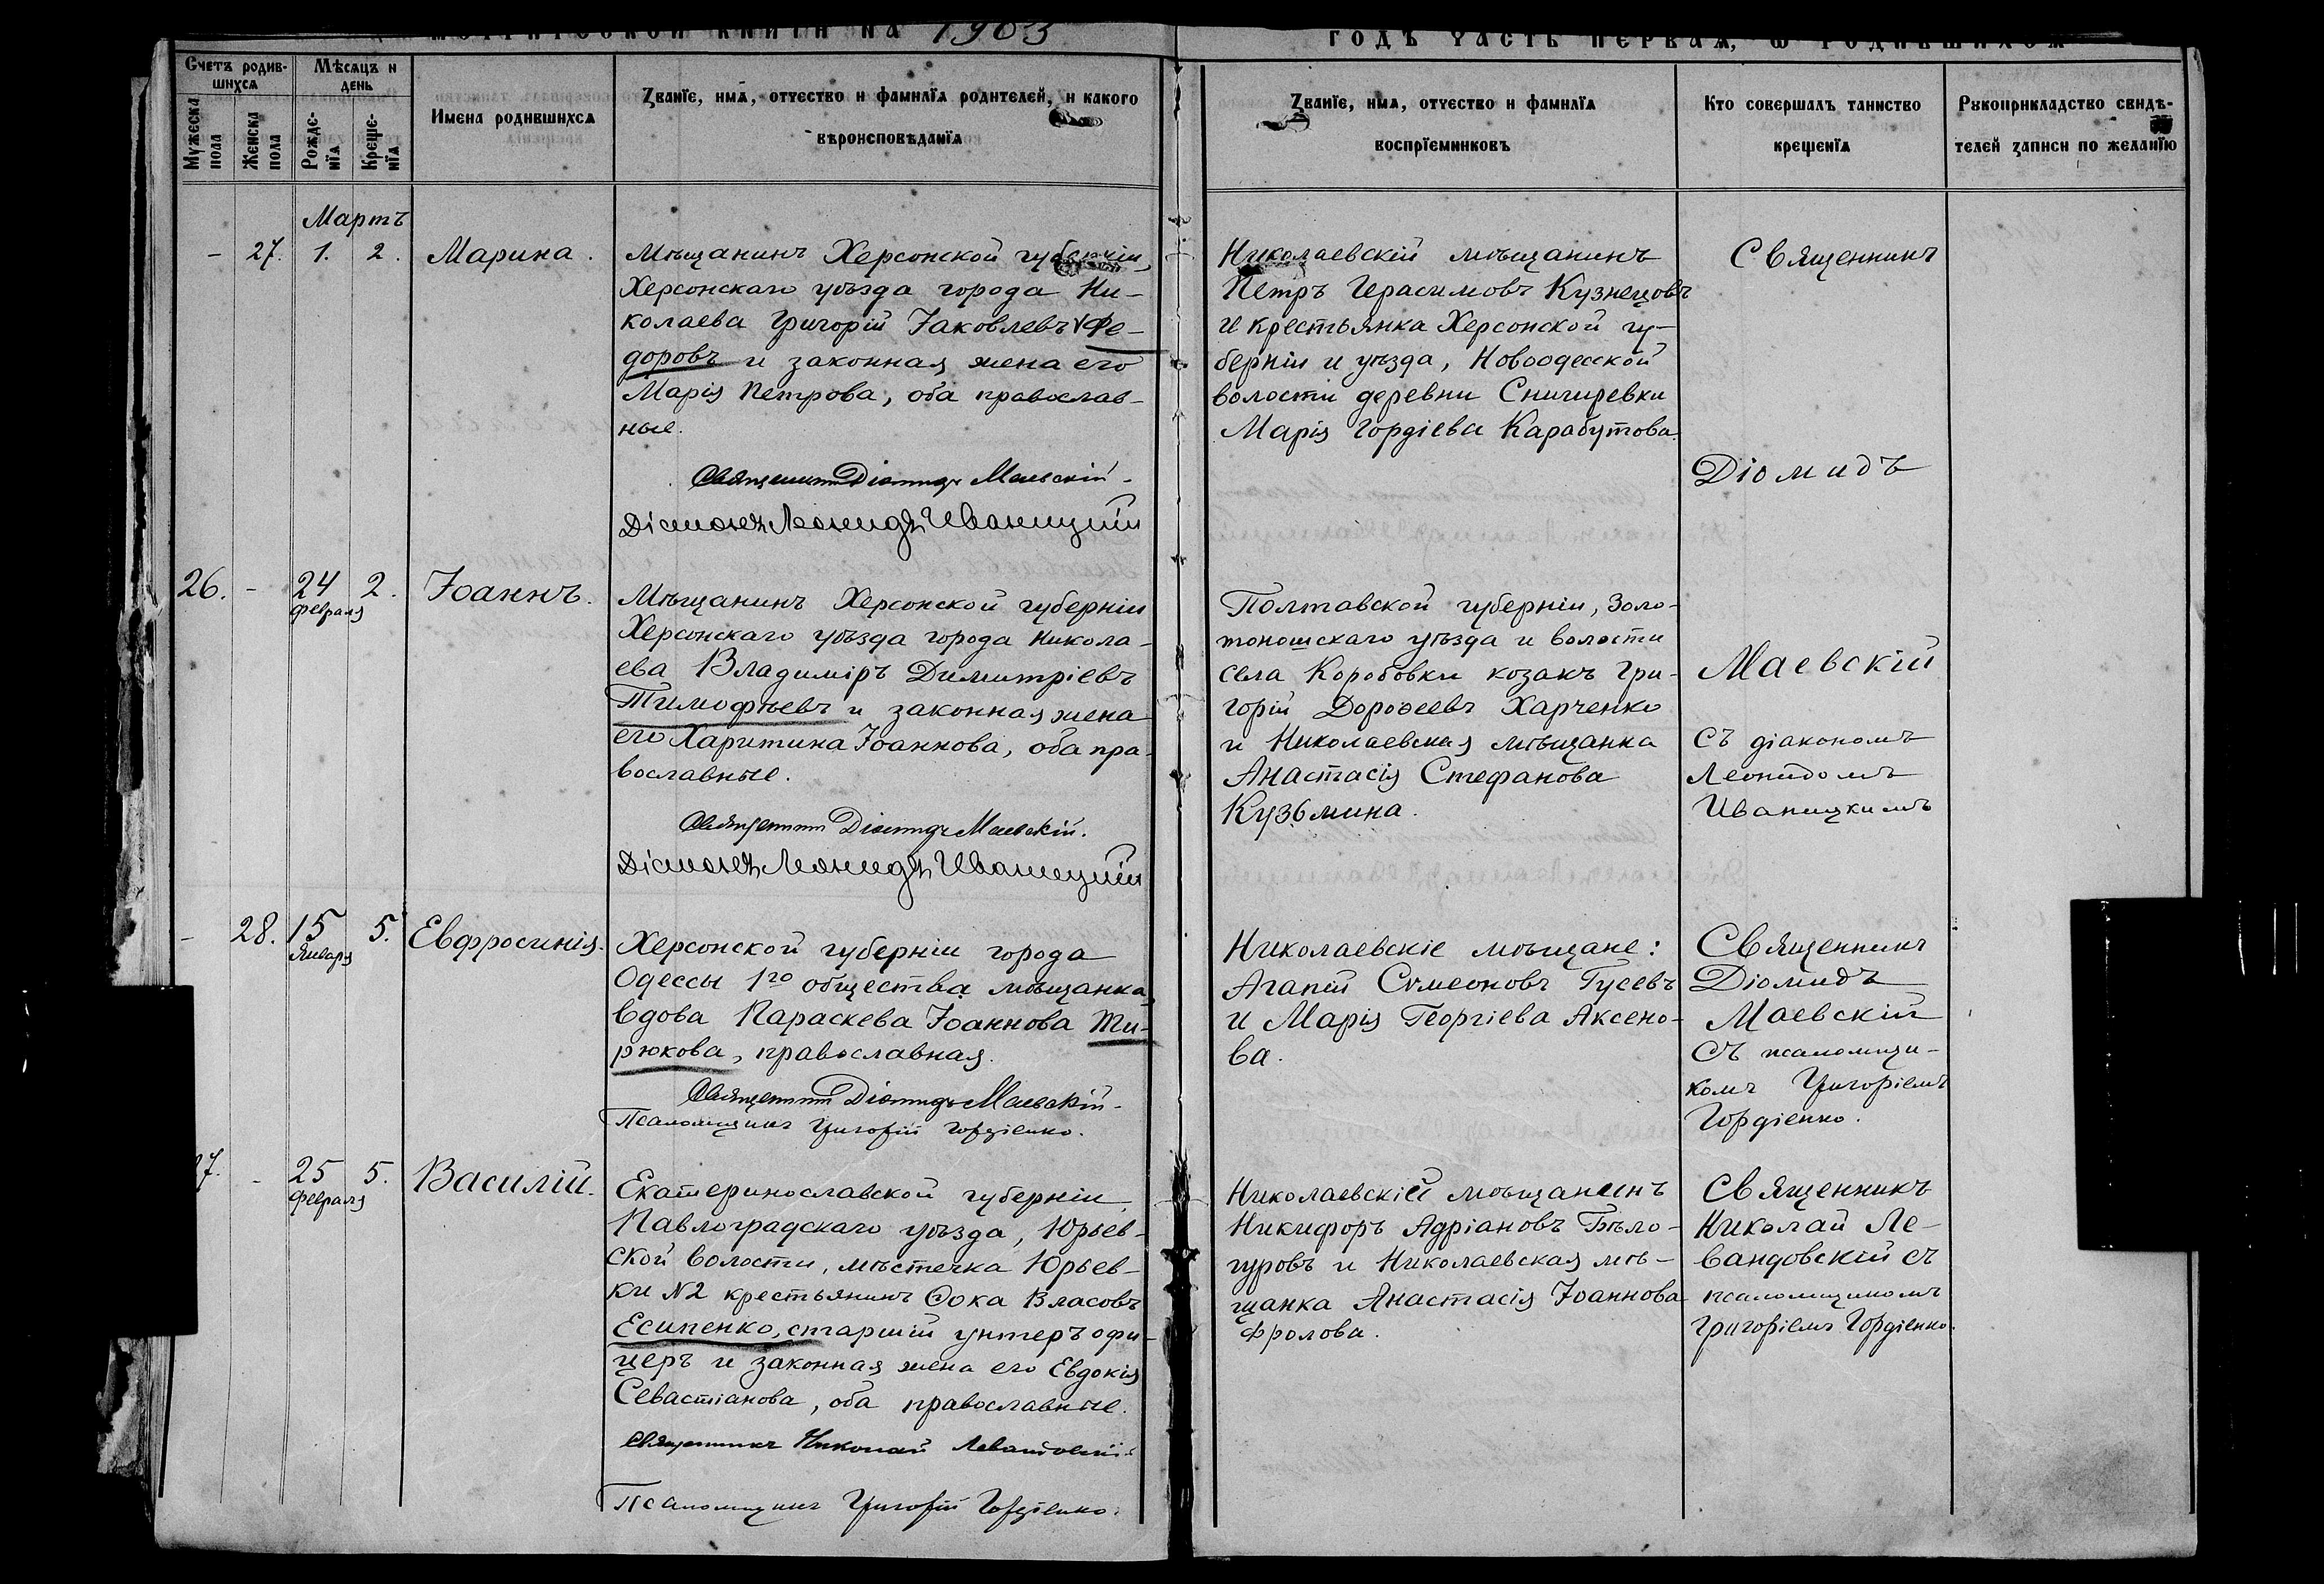 МЕТРИЧЕСКОЙ КНИГИ НА 1903
ГОДЪ ЧАСТЬ ПЕРВАЯ, О РОДИВШИХСЯ
Счетъ родив-
шихся
Мѣсяцъ и
день
Мужеска
пола
Женска
пола
Рожде-
нія
Креще-
нія
Имена родившихся
Званіе, имя, отчество и фамилія родителей, и какого
вѣроисповѣданія
Званіе, имя, отчество и фамилія
воспріемниковъ
Кто совершалъ таинство
крещенія
Рукоприкладство свидѣ-
телей записи по желанію
Мартъ
- 27. 1. 2. Марина.
Мѣщанинъ Херсонской губерніи,
Херсонскаго уѣзда города Ни-
колаева Григорій Іаковлевъ Фе-
доровъ и законная жена его
Марія Петрова, оба православ-
ные.
Священникъ Діомидъ Маевскій.
Діаконъ Леонидъ Иваницкій
Николаевскій мѣщанинъ
Петръ Герасимовъ Кузнецовъ
и крестьянка Херсонской гу-
берніи и уѣзда, Новоодесской
волости деревни Снигиревки
Марія Гордіева Карабутова.
Священникъ
Діомидъ
Маевскій
съ діакономъ
Леонидомъ
Иваницкимъ
26. - 24 2. Іоаннъ.
февраля
Мѣщанинъ Херсонской губерніи
Херсонскаго уѣзда города Никола-
ева Владиміръ Димитріевъ
Тимофѣевъ и законная жена
его Харитина Іоаннова, оба пра-
вославные.
Священникъ Діомидъ Маевскій.
Діаконъ Леонидъ Иваницкій
Полтавской губерніи, Золо-
тоношскаго уѣзда и волости
села Коробовки козакъ Гри-
горій Дороѳеевъ Харченко
и Николаевская мѣщанка
Анастасія Стефанова
Кузьмина.
- 28. 15 5. Евфросинія.
Января
Херсонской губерніи города
Одессы 1го общества мѣщанка,
вдова Параскева Іоаннова Ти-
рюкова, православная.
Священникъ Діомидъ Маевскій.
Псаломщикъ Григорій Гордіенко.
Николаевскіе мѣщане:
Агапій Сѵмеоновъ Гусевъ
и Марія Георгіева Аксено-
ва.
Священникъ
Діомидъ
Маевскій
съ псаломщи-
комъ Григоріемъ
Гордіенко.
27. - 25 5. Василій.
февраля
Екатеринославской губерніи,
Павлоградскаго уѣзда, Юрьев-
ской волости, мѣстечка Юрьев-
ки №2 крестьянинъ Ѳока Власовъ
Есипенко, старшій унтеръ офи-
церъ и законная жена его Евдокія
Севастіанова, оба православные.
Священникъ Николай Левандовскій
Псаломщикъ Григорій Гордіенко.
Николаевскій мѣщанинъ
Никифоръ Адріановъ Бѣло-
гуровъ и Николаевская мѣ-
щанка Анастасія Іоаннова
Фролова.
Священникъ
Николай Ле-
вандовскій съ
псаломщикомъ
Григоріемъ Гордіенко.